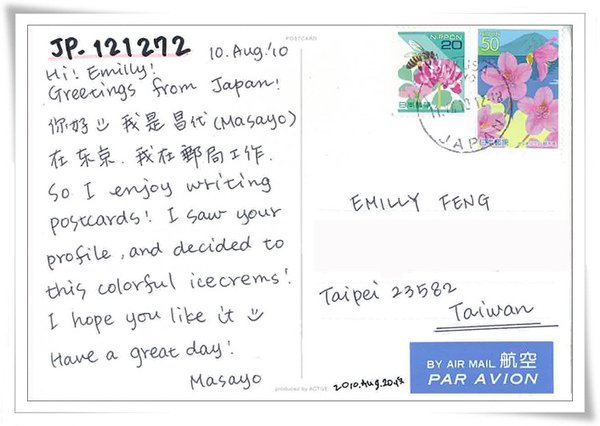 JP-121272
10.Aug.'10
Hi! Emilly!
Greetings from Japan!
你好 我是昌代(Masayo)
在东京.我在郵局工作.
So I enjoy writing
postcards! I saw your
profile, and decided to
this colorful icecrems!
I hope you like it
Have a great day!
Masayo
POSTCARD
NIPPON
20
日本郵便
50
日本郵便
JAPAN
EMILLY FENG
Taipei 23582
Taiwan
BY AIR MAIL 航空
PAR AVION
produced by ACTIVE
2010.Aug.20